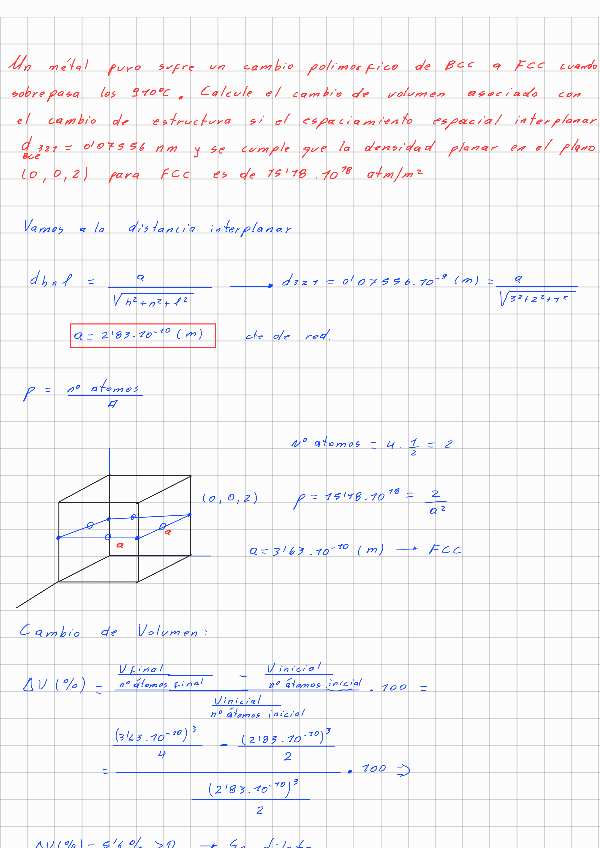 Un métal puro sufre un cambio polimorfico de BCC a FCC cuando
sobrepasa los 910°C. Calcule el cambio de volumen asociado con
el cambio de estructura si el espaciamiento espacial interplanar
d 321 = 0'07556 nm y se cumple que la densidad planar en el plano
BCC
(0,0,2) para FCC es de 15'18.10^18 atm/m²
Vamos a la distancia interplanar
d h k l = a / √(h²+k²+l²) → d321 = 0'07556.10^-9 (m) = a / √(3²+2²+1²)
a = 2'83.10^-10 (m) cte de red.
ρ = nº átomos / A
Nº átomos = 4 . 1/2 = 2
(0,0,2) ρ = 15'18.10^18 = 2 / a²
a a
a = 3'63.10^-10 (m) → FCC
Cambio de Volumen:
ΔV(%) = (V final / nº átomos final - V inicial / nº átomos inicial) / (V inicial / nº átomos inicial) . 100 =
= ((3'63.10^-10)³ / 4 - (2'83.10^-10)³ / 2) / ((2'83.10^-10)³ / 2) . 100 ⇒